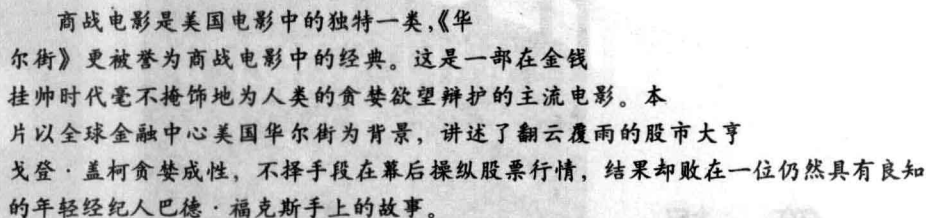 商战电影是美国电影中的独特一类,《华
尔街》更被誉为商战电影中的经典。这是一部在金钱
挂帅时代毫不掩饰地为人类的贪婪欲望辩护的主流电影。本
片以全球金融中心美国华尔街为背景，讲述了翻云覆雨的股市大亨
戈登·盖柯贪婪成性，不择手段在幕后操纵股票行情，结果却败在一位仍然具有良知
的年轻经纪人巴德·福克斯手上的故事。